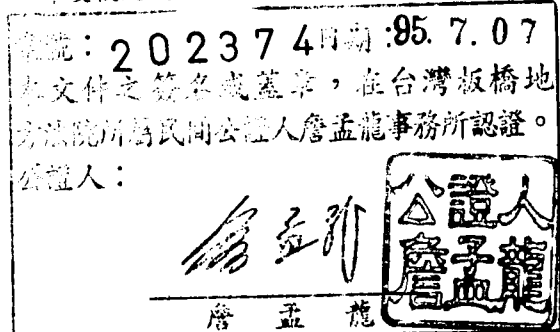 號號：202374日期：95.7.07
本文件之簽名或蓋章，在台灣板橋地
方法院所屬民間公證人詹孟龍事務所認證。
公證人：
詹孟龍
公證人
詹孟龍
詹孟龍